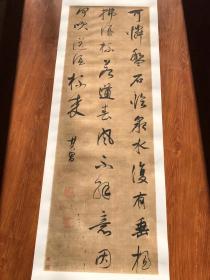 可憐盤石臨泉水復有垂楊
拂酒杯若道春風不解意因
何吹送落花來
其昌